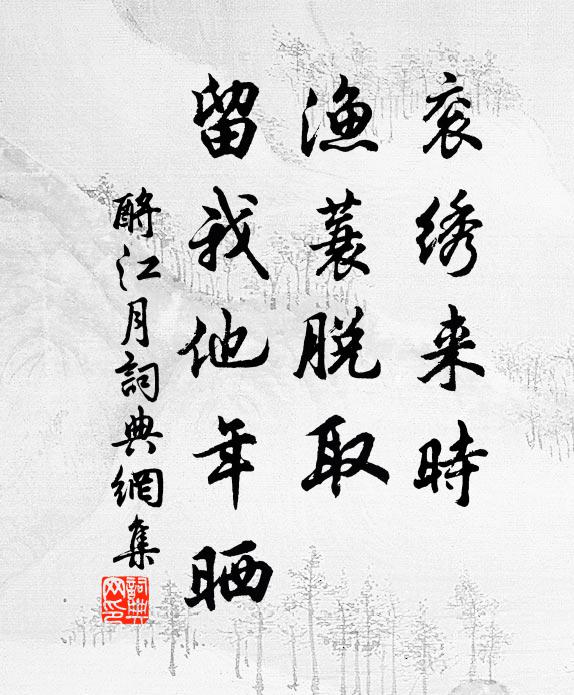 衮绣来時
漁蓑脱取
留我他年晒
酹江月詞典網集
詞典网印